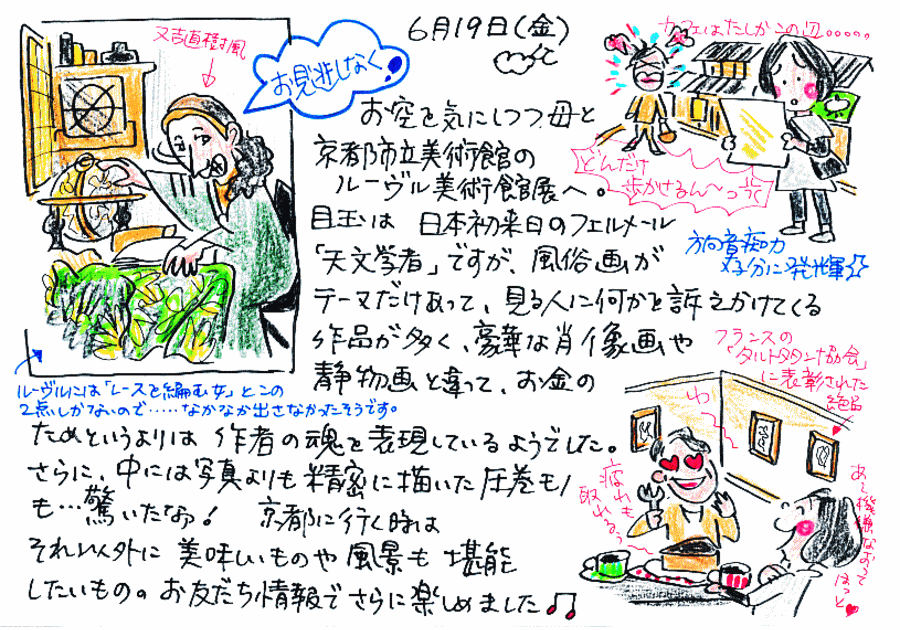 6月19日(金)
又吉直樹風
お見逃しなく
お空を気にしつつ、母と
京都市立美術館の
ルーヴル美術館展へ。
目玉は 日本初来日のフェルメール
「天文学者」ですが、風俗画が
テーマだけあって、見る人に何かと訴えかけてくる
作品が多く、豪華な肖像画や
静物画と違って、お金の
ためというよりは 作者の魂を表現しているようでした。
さらに、中には写真よりも精密に描いた圧巻もの
も…驚いたなあ! 京都に行く時は
それ以外に 美味しいものや風景も 堪能
したいもの。お友だち情報でさらに楽しめました♫
ルーヴルには「レースを編む女」とこの
2点しかないので……なかなか出さなかったそうです。
カフェはたしかこの辺.....
どんだけ
歩かせるん〜っっ
方向音痴力
存分に発揮☆
フランスの
「タルトタタン協会」
に表彰された
絶品
わー
疲れも
取れるぅ
あー機嫌なおって
ほっと♥